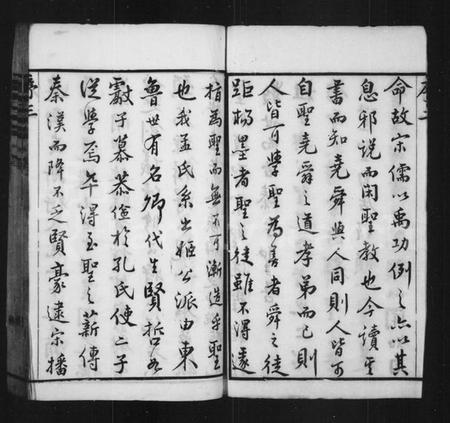 命故宗儒以禹功例之亦以其
息邪说而闲聖教也今讀其
書而知堯舜與人同則人皆可
自聖堯舜之道孝弟而已則
人皆可學聖為善者舜之徒
距楊墨者聖之徒雖不得遽
指為聖而無不可漸造乎聖
也我孟氏系出姬公派由東
魯世有名卿代生賢哲
獻子慕恭儉於孔氏使二子
從學焉卒得至聖之薪傳
秦漢而降不乏賢豪逮宗播
序三